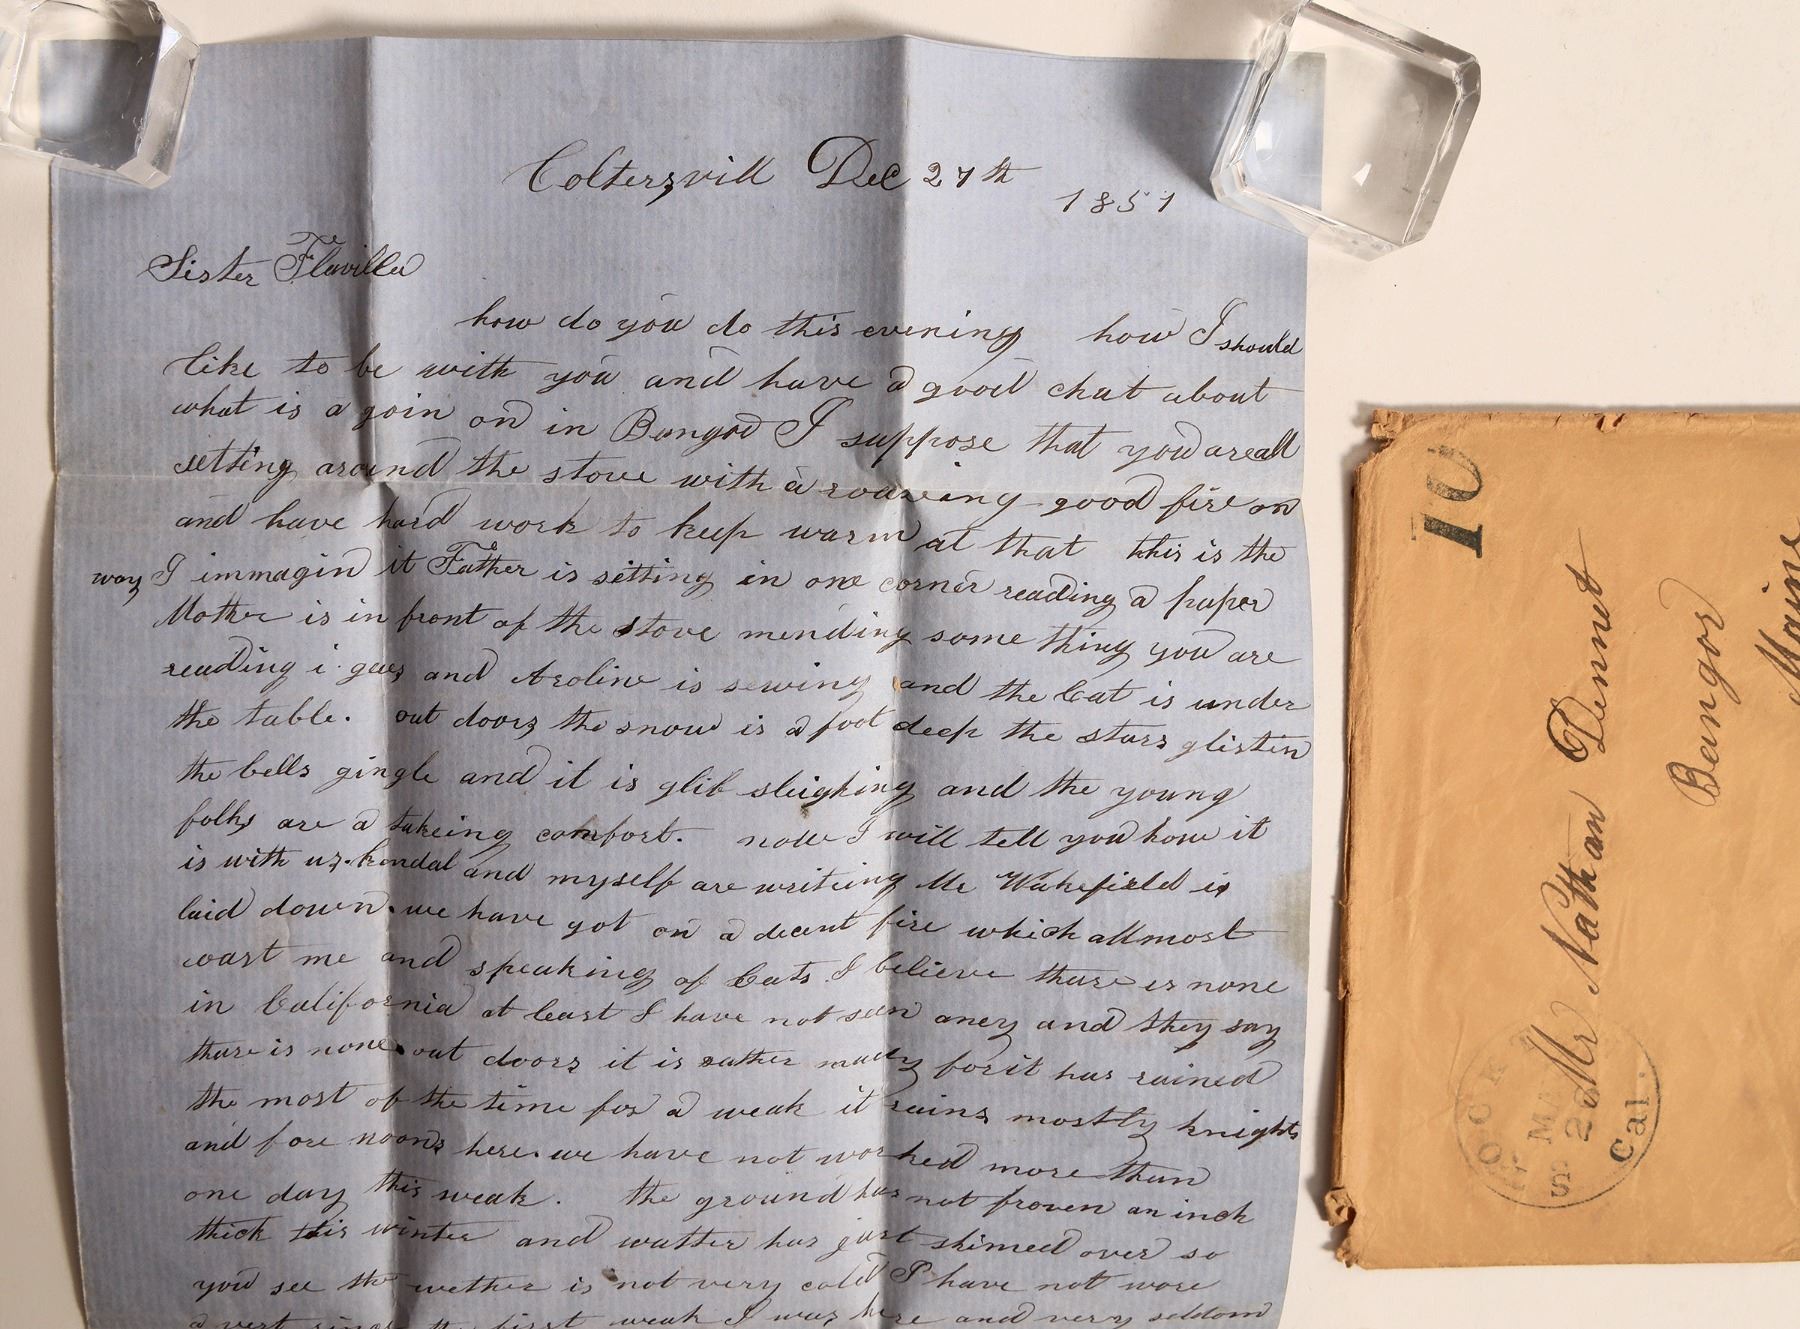 Coltersvill Dec 27th
1851
Sister Flavilla
how do you do this evening how I should
like to be with you and have a good chat about
what is a goin on in Bangor I suppose that you are all
setting around the stove with a roaring good fire on
and have hard work to keep warm at that this is the
way I immagin it Father is setting in one corner reading a paper
Mother is in front of the stove mending some thing you are
reading i gues and Aroline is sewing and the Cat is under
the table. out doors the snow is a foot deep the stars glistin
the bells gingle and it is glib sleighing and the young
folks are a takeing comfort. now I will tell you how it
is with us. kendal and myself are writeing Mr Wakefield is
laid down. we have got on a decent fire which allmost
roast me and speaking of Cats I believe thare is none
in California at least I have not seen aney and they say
thare is none. out doors it is rather muddy for it has rained
the most of the time for a weak it rains mostly knights
and fore noons here. we have not worked more than
one day this weak. the ground has not frozen an inch
thick this winter and watter has just skimed over so
you see the wether is not very cold I have not wore
a vest since the first weak I was here and very seldom
10
Mr Nathan Dennet
Bangor
Maine
MAR
28
Cal.